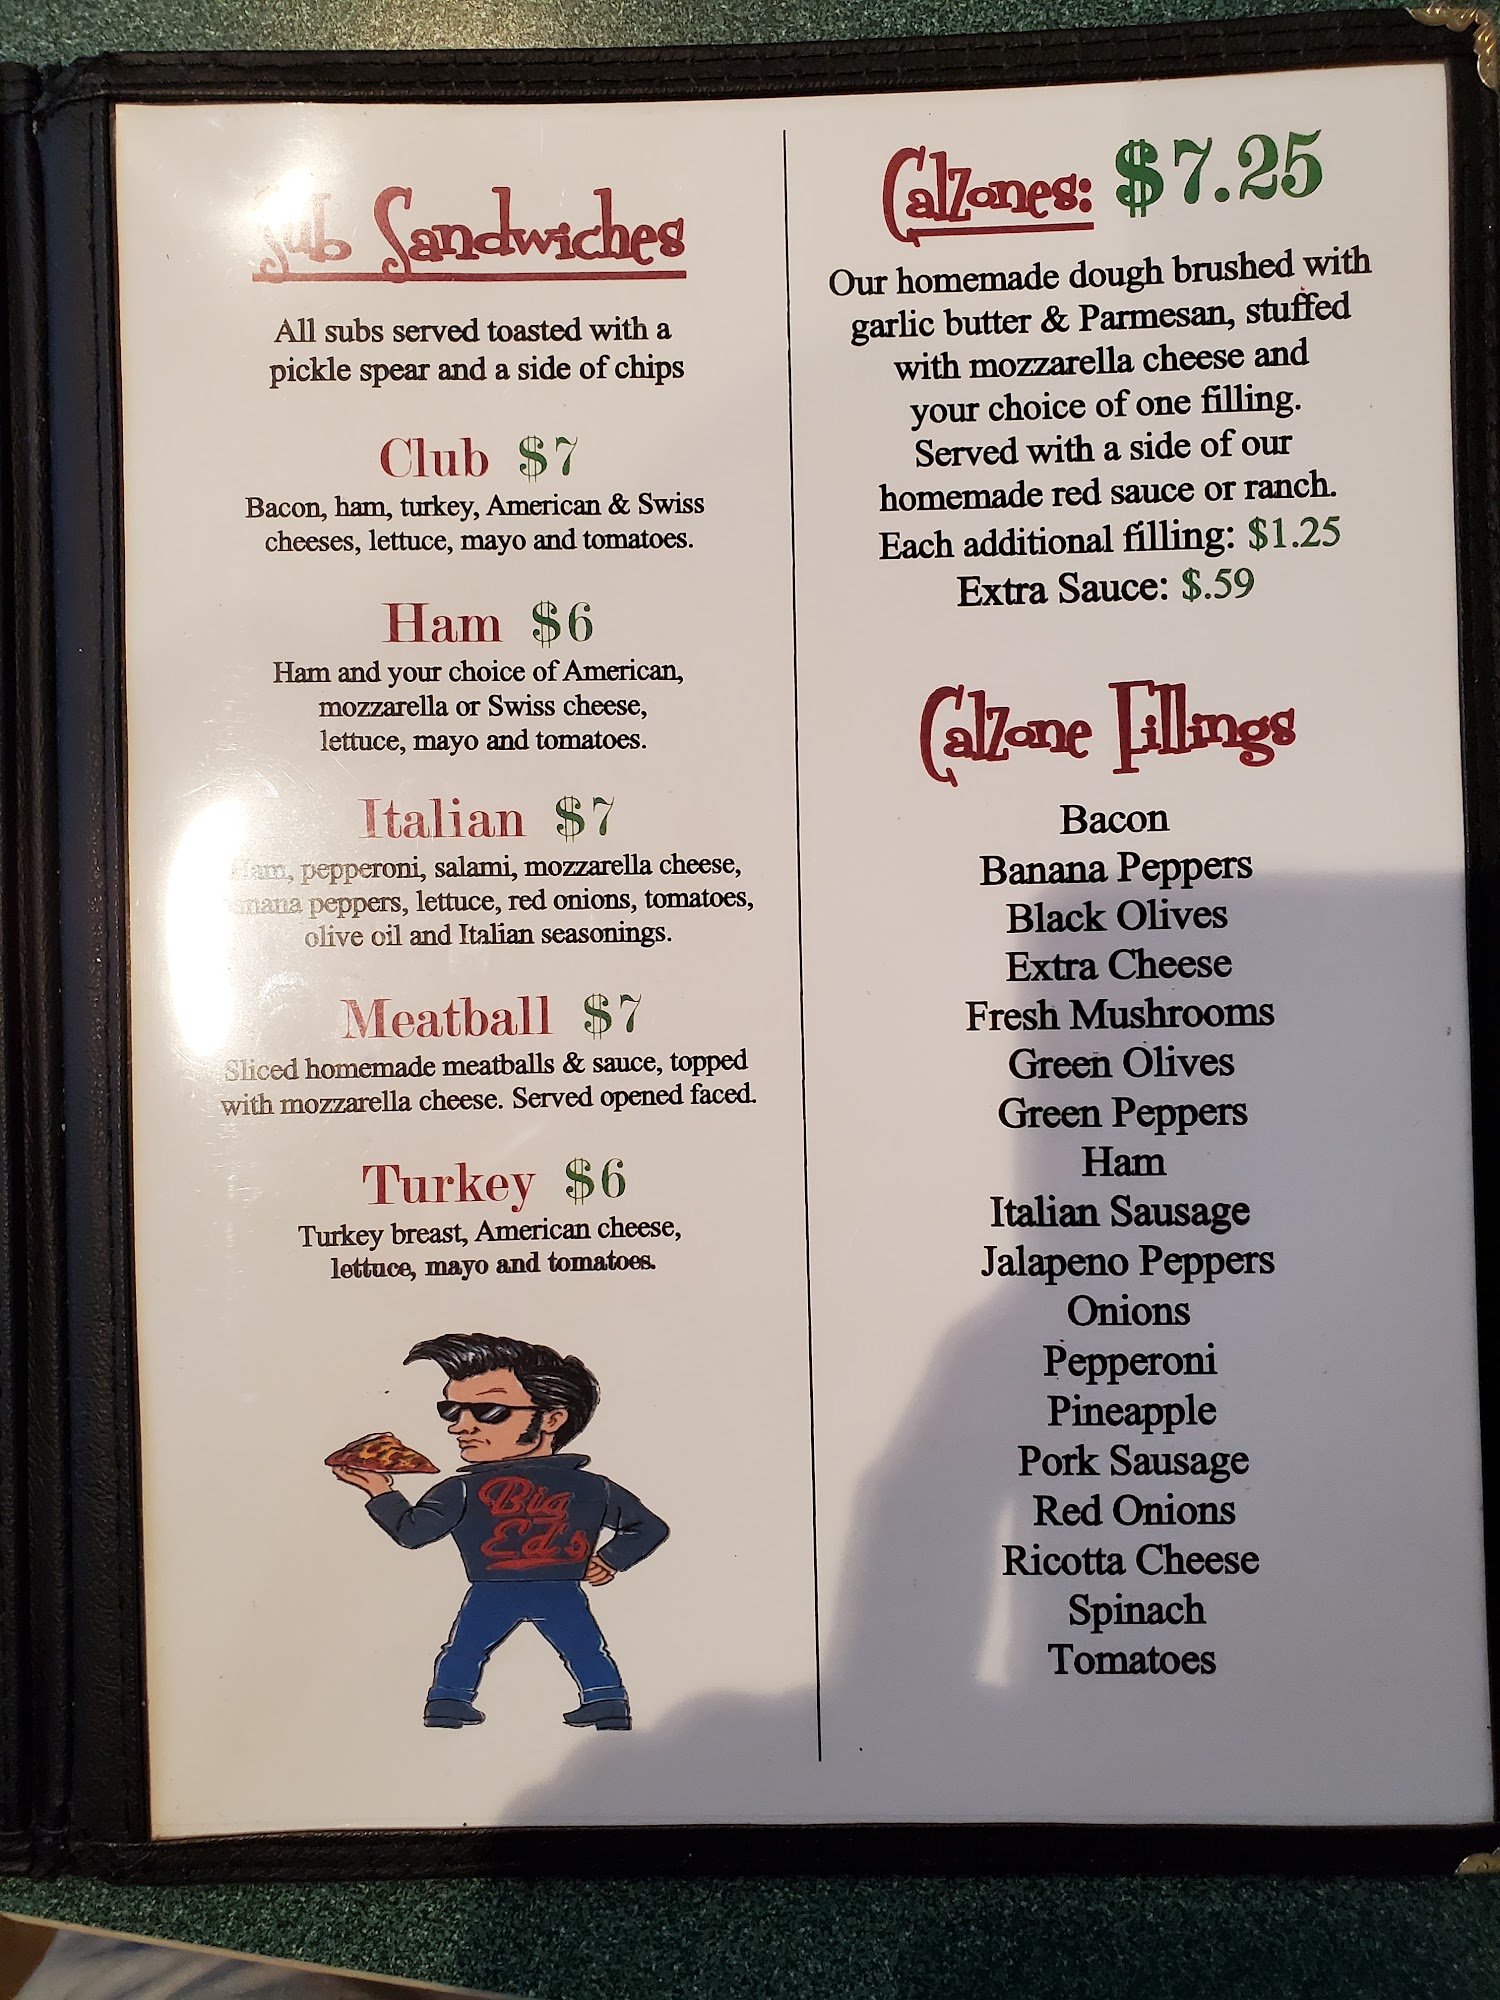 Sub Sandwiches
All subs served toasted with a
pickle spear and a side of chips
Club $7
Bacon, ham, turkey, American & Swiss
cheeses, lettuce, mayo and tomatoes.
Ham $6
Ham and your choice of American,
mozzarella or Swiss cheese,
lettuce, mayo and tomatoes.
Italian $7
Ham, pepperoni, salami, mozzarella cheese,
banana peppers, lettuce, red onions, tomatoes,
olive oil and Italian seasonings.
Meatball $7
Sliced homemade meatballs & sauce, topped
with mozzarella cheese. Served opened faced.
Turkey $6
Turkey breast, American cheese,
lettuce, mayo and tomatoes.
Big
Ed's
Calzones: $7.25
Our homemade dough brushed with
garlic butter & Parmesan, stuffed
with mozzarella cheese and
your choice of one filling.
Served with a side of our
homemade red sauce or ranch.
Each additional filling: $1.25
Extra Sauce: $.59
Calzone Fillings
Bacon
Banana Peppers
Black Olives
Extra Cheese
Fresh Mushrooms
Green Olives
Green Peppers
Ham
Italian Sausage
Jalapeno Peppers
Onions
Pepperoni
Pineapple
Pork Sausage
Red Onions
Ricotta Cheese
Spinach
Tomatoes